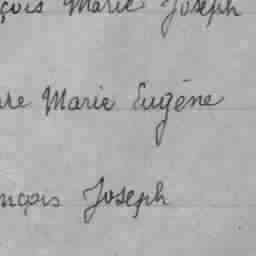 çois Marie Joseph
re Marie Eugène
nçois Joseph